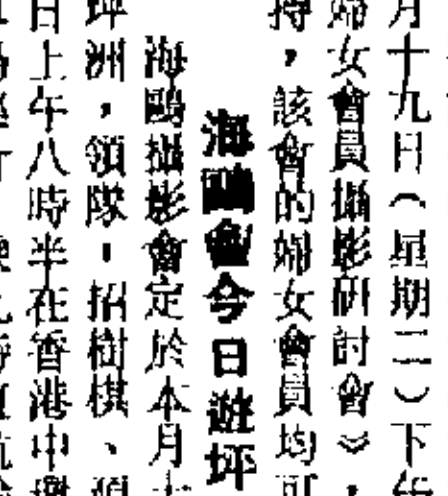 月十九日（星期二）下午
婦女會員攝影研討會》，
持，該會的婦女會員均可
海鷗會今日遊坪
海鷗攝影會定於本月
坪洲，領隊：招樹棋、
日上午八時半在香港中環